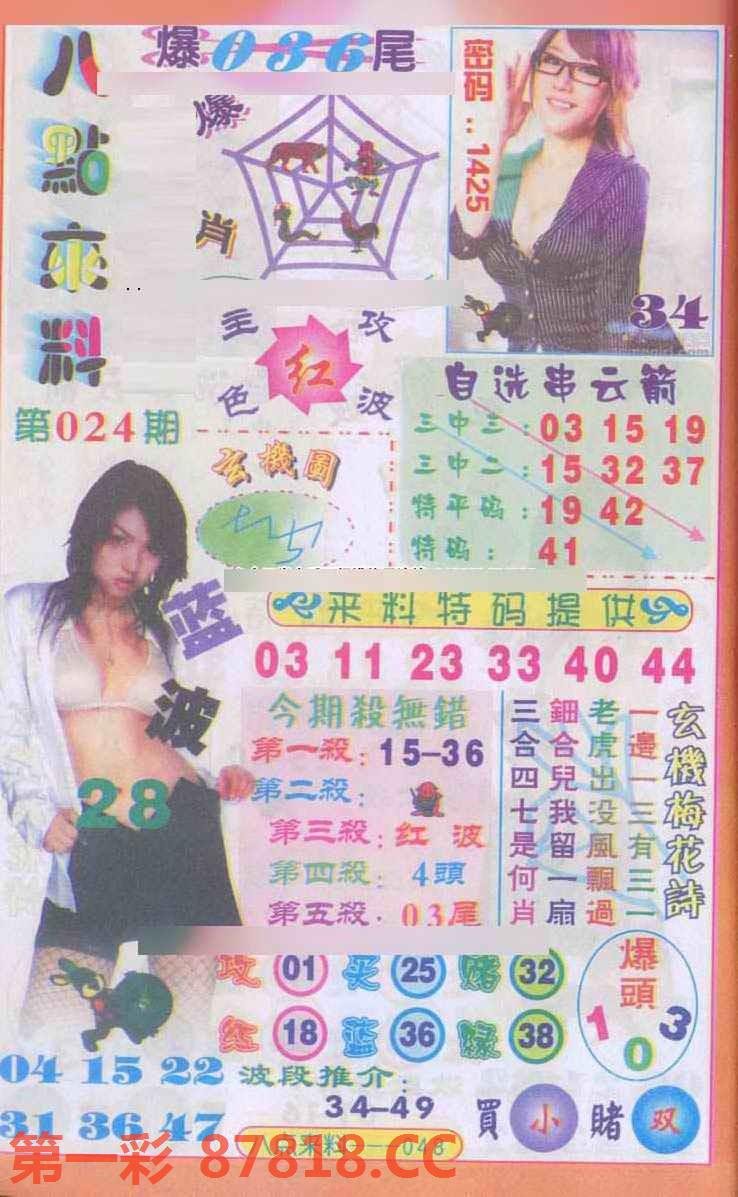 八點來料
爆036尾
爆肖
密码:1425
34
主攻
红
色波
第024期
玄機圖
自选串云箭
三中三:03 15 19
三中二:15 32 37
特平码:19 42
特码: 41
蓝波
28
来料特码提供
03 11 23 33 40 44
今期殺無錯
第一殺:15-36
第二殺:
第三殺:红 波
第四殺: 4頭
第五殺: 03尾
玄機梅花詩
一邊一三有三二
老虎出没風飄過
鈿合兒我留一扇
三合四七是何肖
攻 01 买 25 赌 32
红 18 蓝 36 绿 38
爆頭
1 0 3
04 15 22
31 36 47
波段推介:
34-49
買 小 賭 双
八点来料---048
第一彩 87818.CC